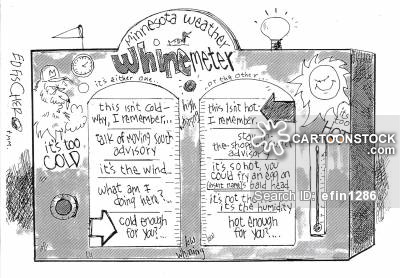 minnesota weather
whinemeter
it's either one...
or the other...
it's too
COLD
high
whining
this isn't cold-
why, I remember...
talk of moving south
advisory
it's the wind...
what am I
doing here?...
cold enough
for you?...
this isn't hot
I remember...
stay
the shop
advisory
it's so hot, you
could fry an egg on
(insert name)'s bald head
it's not the
it's the humidity
hot enough
for you?...
low
whining
it's
too
ED FISCHER
CARTOONSTOCK
.com
Search ID: efin1286